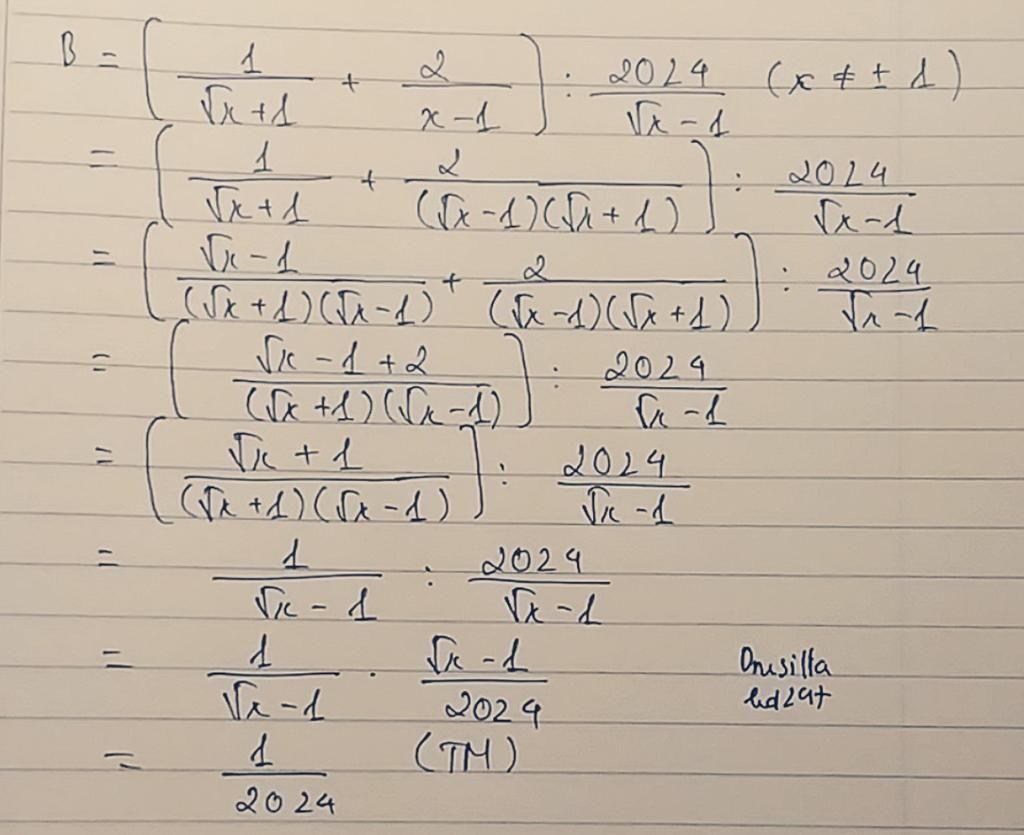 B = [ 1/(√x + 1) + 2/(x - 1) ] : 2024/(√x - 1) (x ≠ ± 1)
= [ 1/(√x + 1) + 2/((√x - 1)(√x + 1)) ] : 2024/(√x - 1)
= [ (√x - 1)/((√x + 1)(√x - 1)) + 2/((√x - 1)(√x + 1)) ] : 2024/(√x - 1)
= [ (√x - 1 + 2)/((√x + 1)(√x - 1)) ] : 2024/(√x - 1)
= [ (√x + 1)/((√x + 1)(√x - 1)) ] : 2024/(√x - 1)
= 1/(√x - 1) : 2024/(√x - 1)
= 1/(√x - 1) . (√x - 1)/2024
Drusilla
hd247
= 1/2024 (TM)